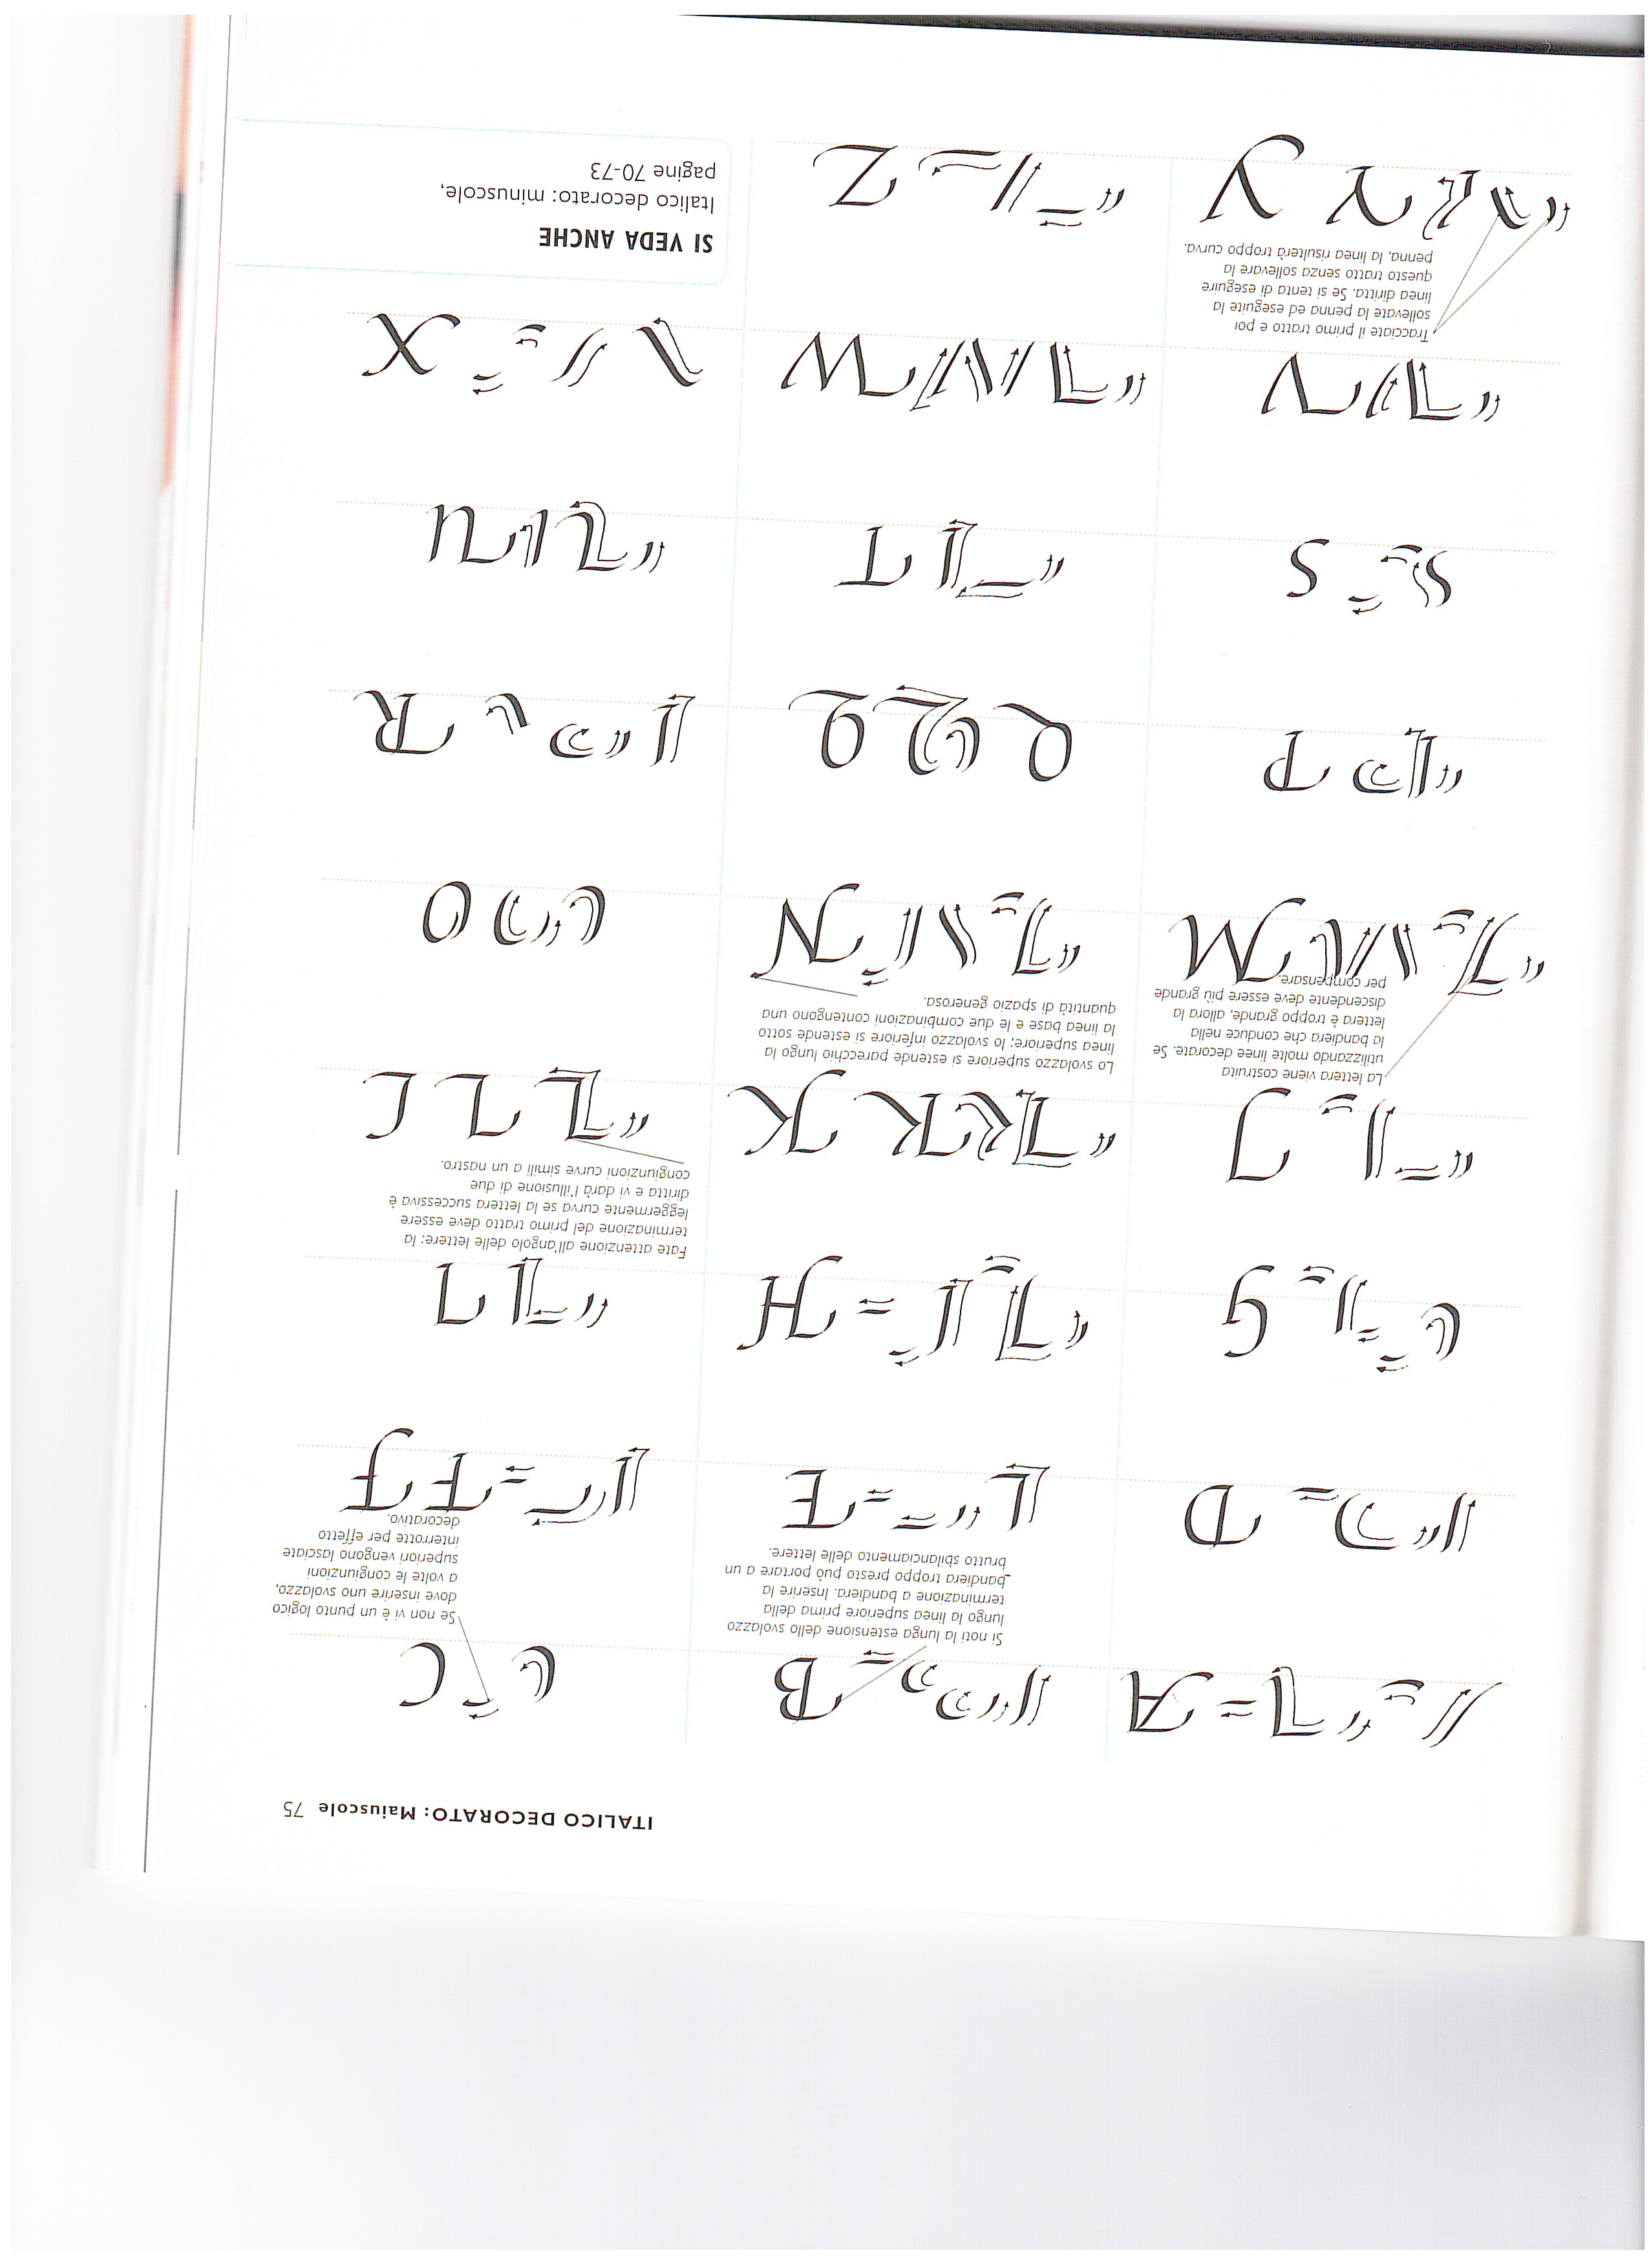 ITALICO DECORATO: Maiuscole 75
A
B
C
Si noti la lunga estensione dello svolazzo
lungo la linea superiore prima della
terminazione a bandiera. Inserire la
bandiera troppo presto può portare a un
brutto sbilanciamento delle lettere.
Se non vi è un punto logico
dove inserire uno svolazzo,
a volte le congiunzioni
superiori vengono lasciate
interrotte per effetto
decorativo.
D
E
F F
G
H
I
Fate attenzione all'angolo delle lettere: la
terminazione del primo tratto deve essere
leggermente curva se la lettera successiva è
diritta e vi darà l'illusione di due
congiunzioni curve simili a un nastro.
J
K K
L L
La lettera viene costruita
utilizzando molte linee decorate. Se
la bandiera che conduce nella
lettera è troppo grande, allora la
discendente deve essere più grande
per compensare.
Lo svolazzo superiore si estende parecchio lungo la
linea superiore; lo svolazzo inferiore si estende sotto
la linea base e le due combinazioni contengono una
quantità di spazio generosa.
M
N
O
P
Q Q
R
S
T
U
V
W
X
Tracciate il primo tratto e poi
sollevate la penna ed eseguite la
linea diritta. Se si tenta di eseguire
questo tratto senza sollevare la
penna, la linea risulterà troppo curva.
Y Y
Z
SI VEDA ANCHE
Italico decorato: minuscole,
pagine 70-73